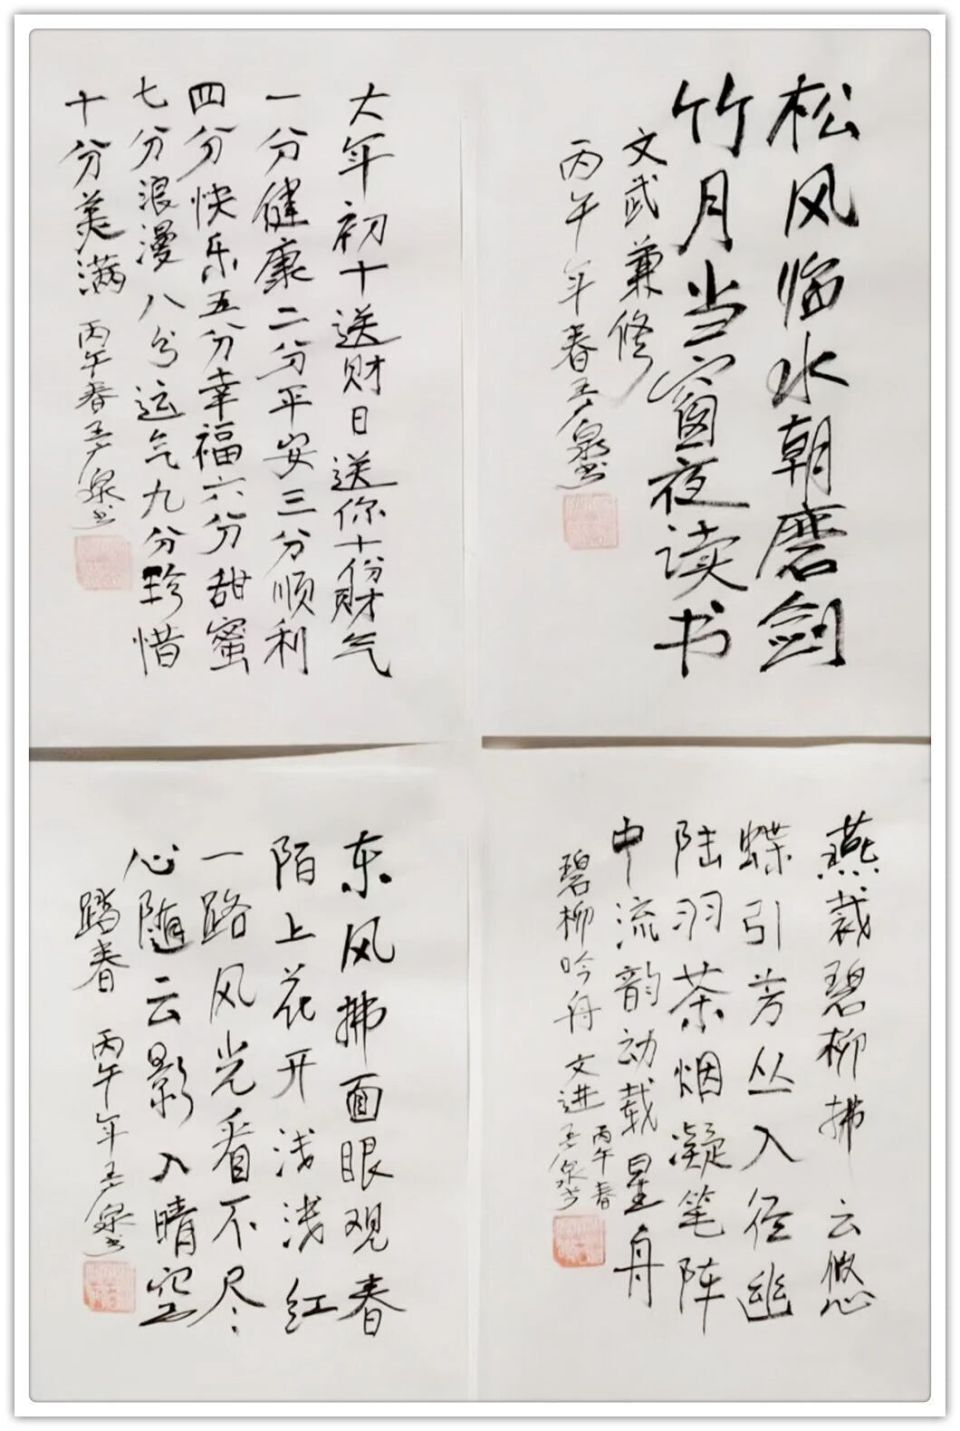 松风临水朝磨剑
竹月当窗夜读书
文武兼修
丙午年春
大年初十送财日送你十份财气
一分健康二分平安三分顺利
四分快乐五分幸福六分甜蜜
七分浪漫八分运气九分珍惜
十分美满
丙午春
燕裁碧柳拂云悠
蝶引芳丛入径幽
陆羽茶烟凝笔阵
中流韵动载星舟
碧柳吟舟 文进
丙午春
东风拂面眼观春
陌上花开浅浅红
一路风光看不尽
心随云影入晴空
踏春 丙午年